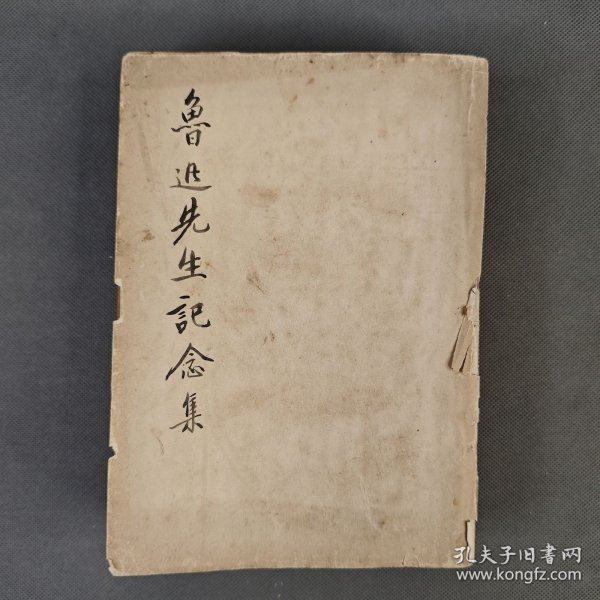 魯迅先生記念集
孔夫子旧書网
www.kongfz.com